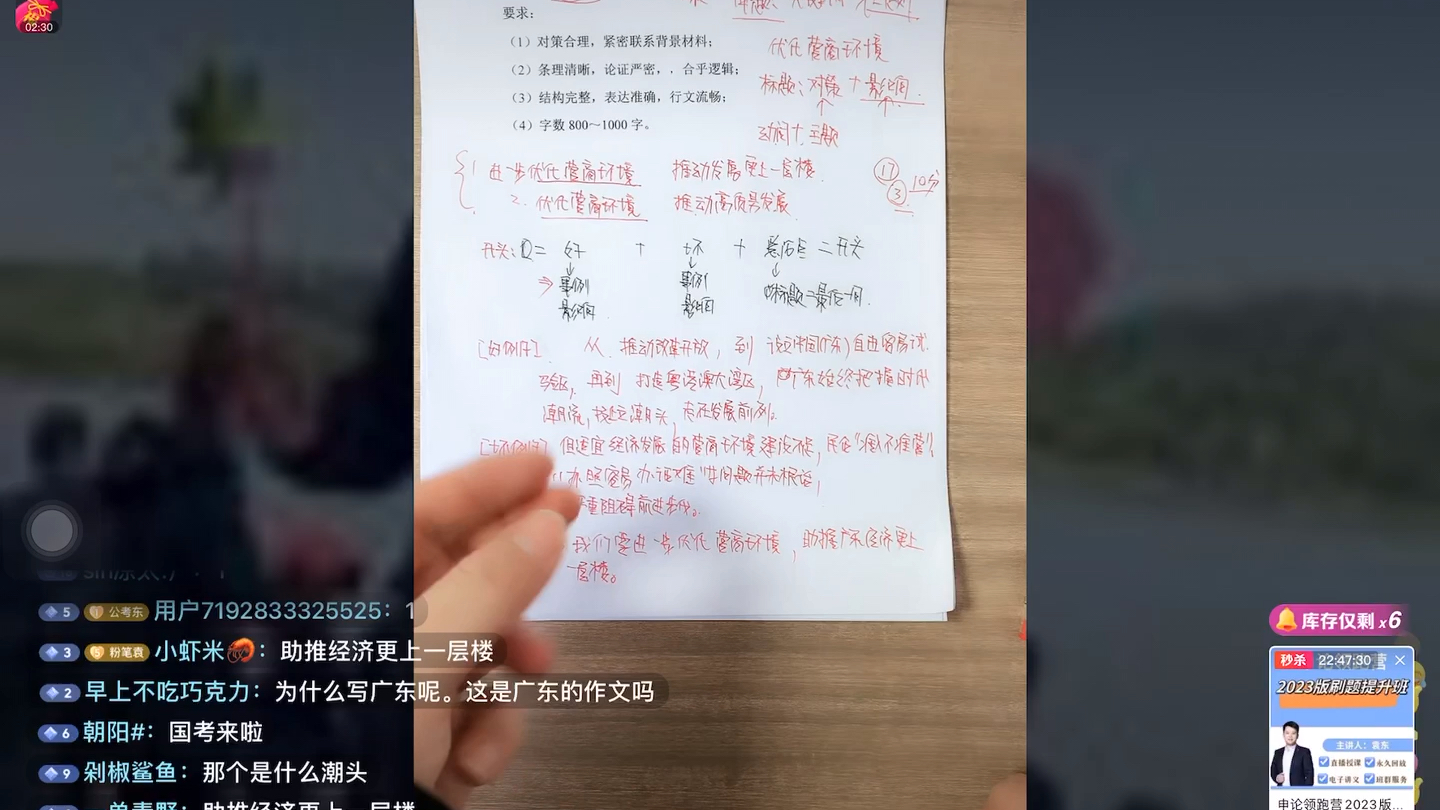 02:30
要求:
(1) 对策合理，紧密联系背景材料；
(2) 条理清晰，论证严密，. 合乎逻辑；
(3) 结构完整，表达准确，行文流畅；
(4) 字数 800～1000 字。
优化营商环境
标题：对策 + 影响.
动词 + 主题
1 进一步优化营商环境 推动发展更上一层楼
2. 优化营商环境 推动高质量发展
17
3
10分
开头：
好 + 坏 +
↓ ↓ ↓
案例 案例
影响 影响
[好例子]. 从 推动改革开放，到 设立中国(广东)自由贸易试
验区，再到 打造粤港澳大湾区，广东始终把握时代
潮流，挺立潮头，走在发展前列。
[坏例子] 但适宜经济发展的营商环境建设不足，民企"准入不准营"
办照容易办证难"等问题并未根治，
严重阻碍前进步伐。
我们要进一步优化营商环境，助推广东经济更上
一层楼。
5 公考东 用户7192833325525：1
3 粉笔袁 小虾米🦐：助推经济更上一层楼
2 早上不吃巧克力：为什么写广东呢。这是广东的作文吗
6 朝阳#：国考来啦
9 剁椒鲨鱼：那个是什么潮头
库存仅剩 x6
秒杀 22:47:30
2023版刷题提升班
主讲人：袁东
直播授课 永久回放
电子讲义 班群服务
申论领跑营2023版...